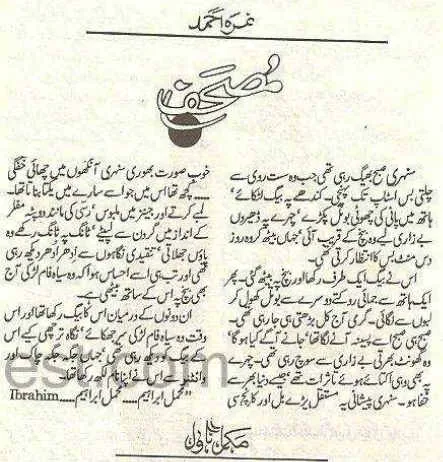 نمرہ احمد
مُصحَف
سنہری صبح بھیگ رہی تھی جب وہ سست روی سے
چلتی بس اسٹاپ تک پہنچی۔ کندھے پہ بیگ لٹکائے،
ہاتھ میں پانی کی چھوٹی بوتل پکڑے، چہرے پہ ڈھیروں
بے زاری لیے وہ بنچ کے قریب آئی، جہاں بیٹھ کر وہ روز
دس منٹ بس کا انتظار کرتی تھی۔
اس نے بیگ ایک طرف رکھا اور بنچ پہ بیٹھ گئی۔ پھر
ایک ہاتھ سے جمائی روکتے دوسرے سے بوتل کھول کر
لبوں سے لگائی۔ گرمی آج کل بڑھتی ہی جا رہی تھی۔
صبح ہی صبح اسے پسینہ آنے لگا تھا، جانے آگے کیا ہو گا،
وہ گھونٹ بھرتی بے زاری سے سوچ رہی تھی۔ چہرے
پہ بھی وہی اکتائے ہوئے تاثرات تھے، جیسے دنیا بھر سے
خفا ہو۔ سنہری پیشانی پہ مستقل پڑے بل اور کانچ سی
خوب صورت بھوری سنہری آنکھوں میں چھائی خفگی
..... کچھ تھا اس میں جو اسے سارے میں یکتا بناتا تھا۔
لمبے کرتے اور جینز میں ملبوس، رسی کی مانند دوپٹہ مفلر
کے انداز میں گردن سے لپیٹے، ٹانگ پہ ٹانگ رکھے وہ
پاؤں جھلاتی، تنقیدی نگاہوں سے اِدھر اُدھر دیکھ رہی
تھی اور تب ہی اسے احساس ہوا کہ وہ سیاہ فام لڑکی آج
بھی بنچ پہ اس کے ساتھ بیٹھی ہے۔
ان دونوں کے درمیان اس کا بیگ رکھا تھا اور اس
وقت وہ سیاہ فام لڑکی سر جھکائے، نگاہ ترچھی کیے اس
کے بیگ کو دیکھ رہی تھی، جہاں جگہ جگہ چاک اور
وائٹنر سے اس نے اپنا نام لکھ رکھا تھا۔
"محمل ابراہیم..... محمل ابراہیم..... Ibrahim
مکمل ناول
est.com